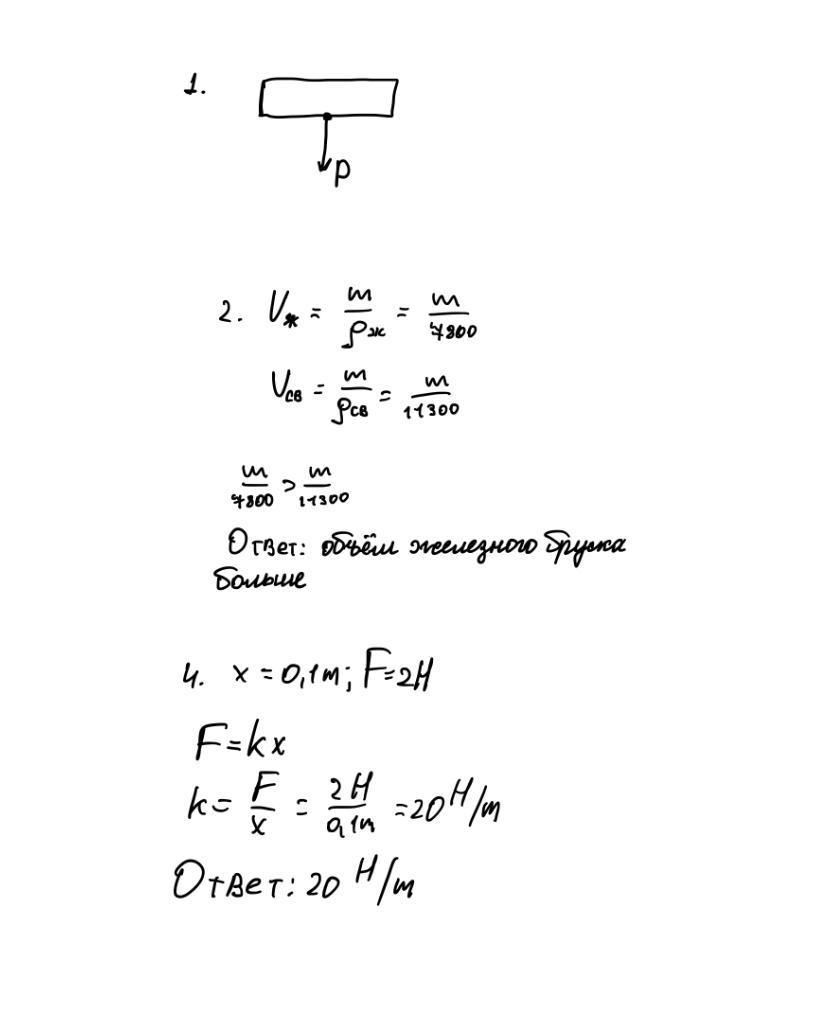 1.
P
2. Vж = m/ρж = m/7800
Vсв = m/ρсв = m/11300
m/7800 > m/11300
Ответ: объём железного бруска
больше
4. x = 0,1m; F=2H
F=kx
k= F/x = 2H/0,1m =20 H/m
Ответ: 20 H/m